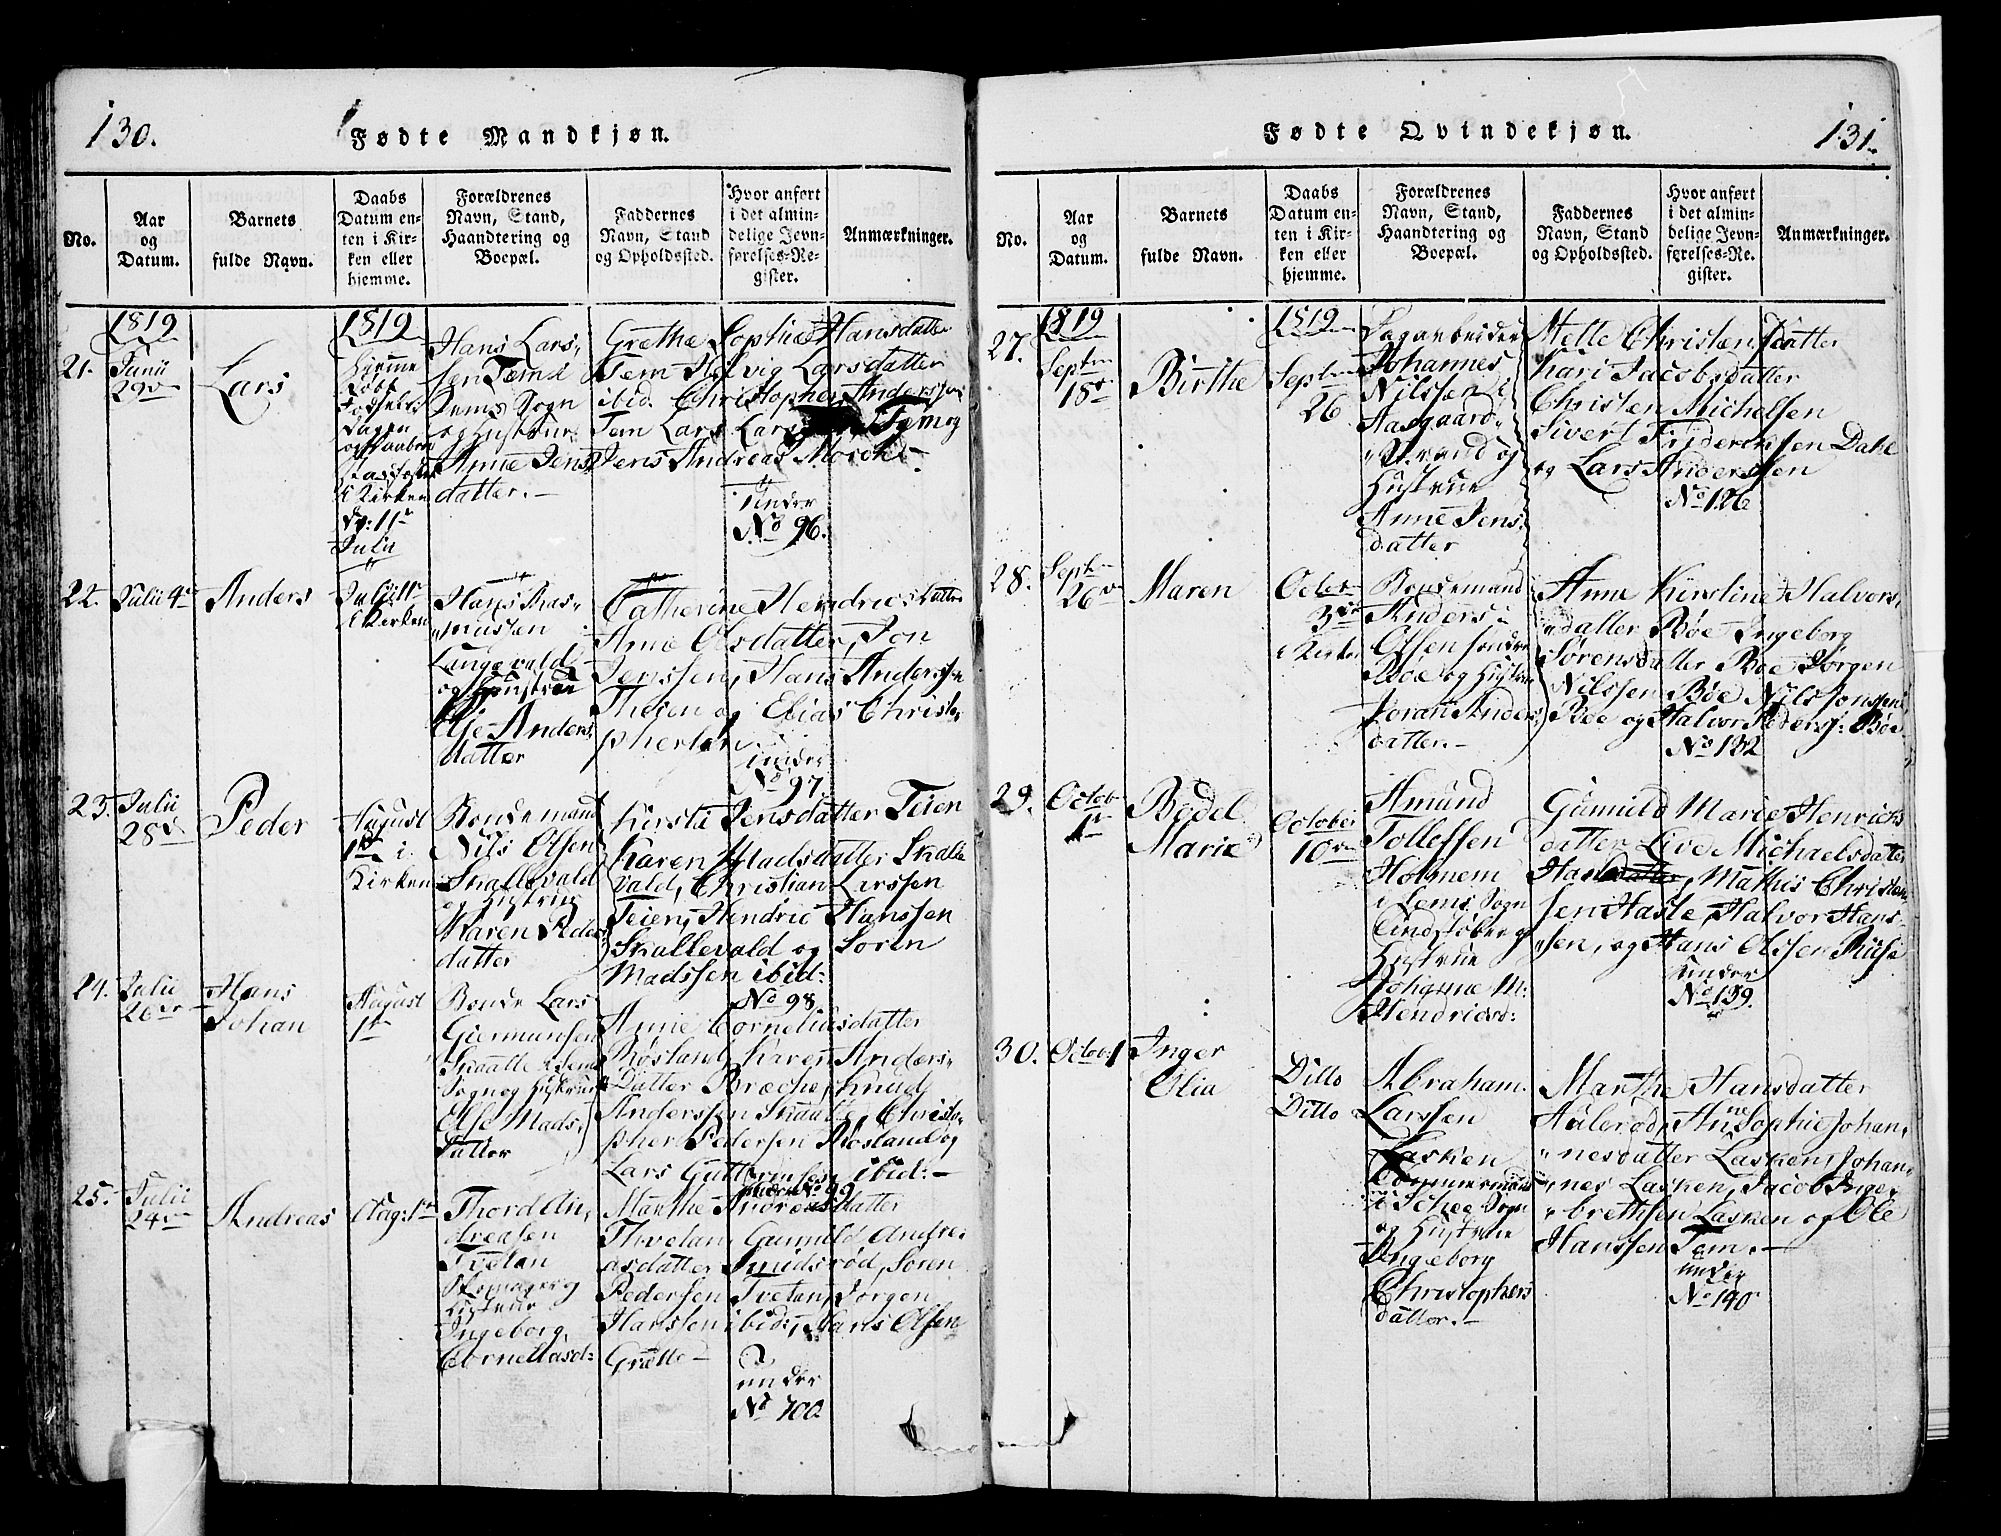 130.
Fødte Mandkjøn.
No.
Aar
og
Datum.
Barnets
fulde Navn.
Daabs
Datum en-
ten i Kir-
ken eller
hjemme.
Forældrenes
Navn, Stand,
Haandtering og
Boepæl.
Faddernes
Navn, Stand
og Opholdssted.
Hvor anført
i det almin-
delige Jevn-
førelses-Re-
gister.
Anmærkninger.
1819
21.
Junii
29de
Lars
1819
Hiemme
døbt
Fødsels
Dagen
i Kirken
d: 11te
Julii
Hans Lars-
sen Tem i
Sems Sogn
og Hustrue
Anne Jens
datter.-
Grethe Sophie Hansdatter
Tem Helvig Larsdatter
ibid. Christopher Anderssen
Tem Lars Lars Tem og
Jens Andreas
under
No 96.
22.
Julii 4de
Anders
Julii 11te
i Kirken
Hans Ras-
mussen
Langevald
og Hustrue
Else Anders
datter
Catherine Hendrics datter
Anne Olsdatter, Jon
Jenssen, Hans Anderssen
Theien og Elias Christo-
phersen.
under
No 97.
23.
Julii
28de
Peder
August
1te i
Kirken
Bondemand
Nils Olsen
Skallevald
og Hustrue
Karen Peders
datter
Kirsti Jensdatter Teien
Karen Madsdatter Skalle
vald, Christian Larssen
Teien, Hendric Hanssen
Skallevald og Søren
Madssen ibid:
No 98.
24.
Julii
26de
Hans
Johan
August
1te
Bonde Lars
Skaalle i Sems
Sogn og Hustrue
Else Mads-
datter
Anne Corneliusdatter
Røsland, Karen Anders-
Datter Breche, Knud
Anderssen Skaalle, Christo-
pher Pedersen Røsland og
Lars Guttormsen ibid:-
under No 99
25.
Julii
24de
Andreas
Aug: 1te
Thord An-
dreasen
Tvetan
Hustrue
Ingeborg
Corneliasd:
Marthe Andreasdatter
Thvetan, Gunnild Andre-
asdatter Smidsrød, Søren
Pedersen Tvetan, Jørgen
Hanssen ibid:, Hans Olsen
Grette-
under
No 100
Fødte Qvindekjøn.
131.
No.
Aar
og
Datum.
Barnets
fulde Navn.
Daabs
Datum en-
ten i Kir-
ken eller
hjemme.
Forældrenes
Navn, Stand,
Haandtering og
Boepæl.
Faddernes
Navn, Stand
og Opholdssted.
Hvor anført
i det almin-
delige Jevn-
førelses-Re-
gister.
Anmærkninger.
1819
27.
Septr
18de
Birthe
1819
Septr
26
Dagarbeider
Johannes
Nilssen i
Aasgaard-
strand og
Hustrue
Anne Jens-
datter
Mette Christen Datter
Kari Jacobsdatter
Christen Michelsen
Sivert Friderichsen Dahl
og Lars Anderssen
No 126
28.
Septr
26de
Maren
Octobr
3de
i Kirken
Bondemand
Anders
Olssen søndre
Bøe og Hustrue
Joran Anders
datter.-
Anne Kirstine Halvors-
datter Bøe Ingeborg
Sørensdatter Bøe Jørgen
Nilssen Bøe Nils Jonssen
Bøe og Halvor Pederss: Bøe
No 132
29.
Octob
1te
Bodel
Marie
October
10de
Amund
Tollefsen
Holmem
i Sems Sogn
Hustrue
Johanne M:
Hendricsd:
Gunnild Marie Henrichs
datter, Live Michaelsdatter
Mathis Christen-
sen Hasle, Halvor Hans-
sen, og Hans Olssen
under
No 139.
30.
Octob: 1
Inger
Olia
Ditto
Ditto
Abraham
Larssen
Lasken
i Schee Sogn
og Hustrue
Ingeborg
Christophers
datter.-
Marthe Hansdatter
Aulerød, Anne Sophie Johan-
nesdatter Lasken, Johan-
nes Lasken, Jacob Inge-
brethsen Lasken og Ole
Hanssen Tem.-
under
No 140